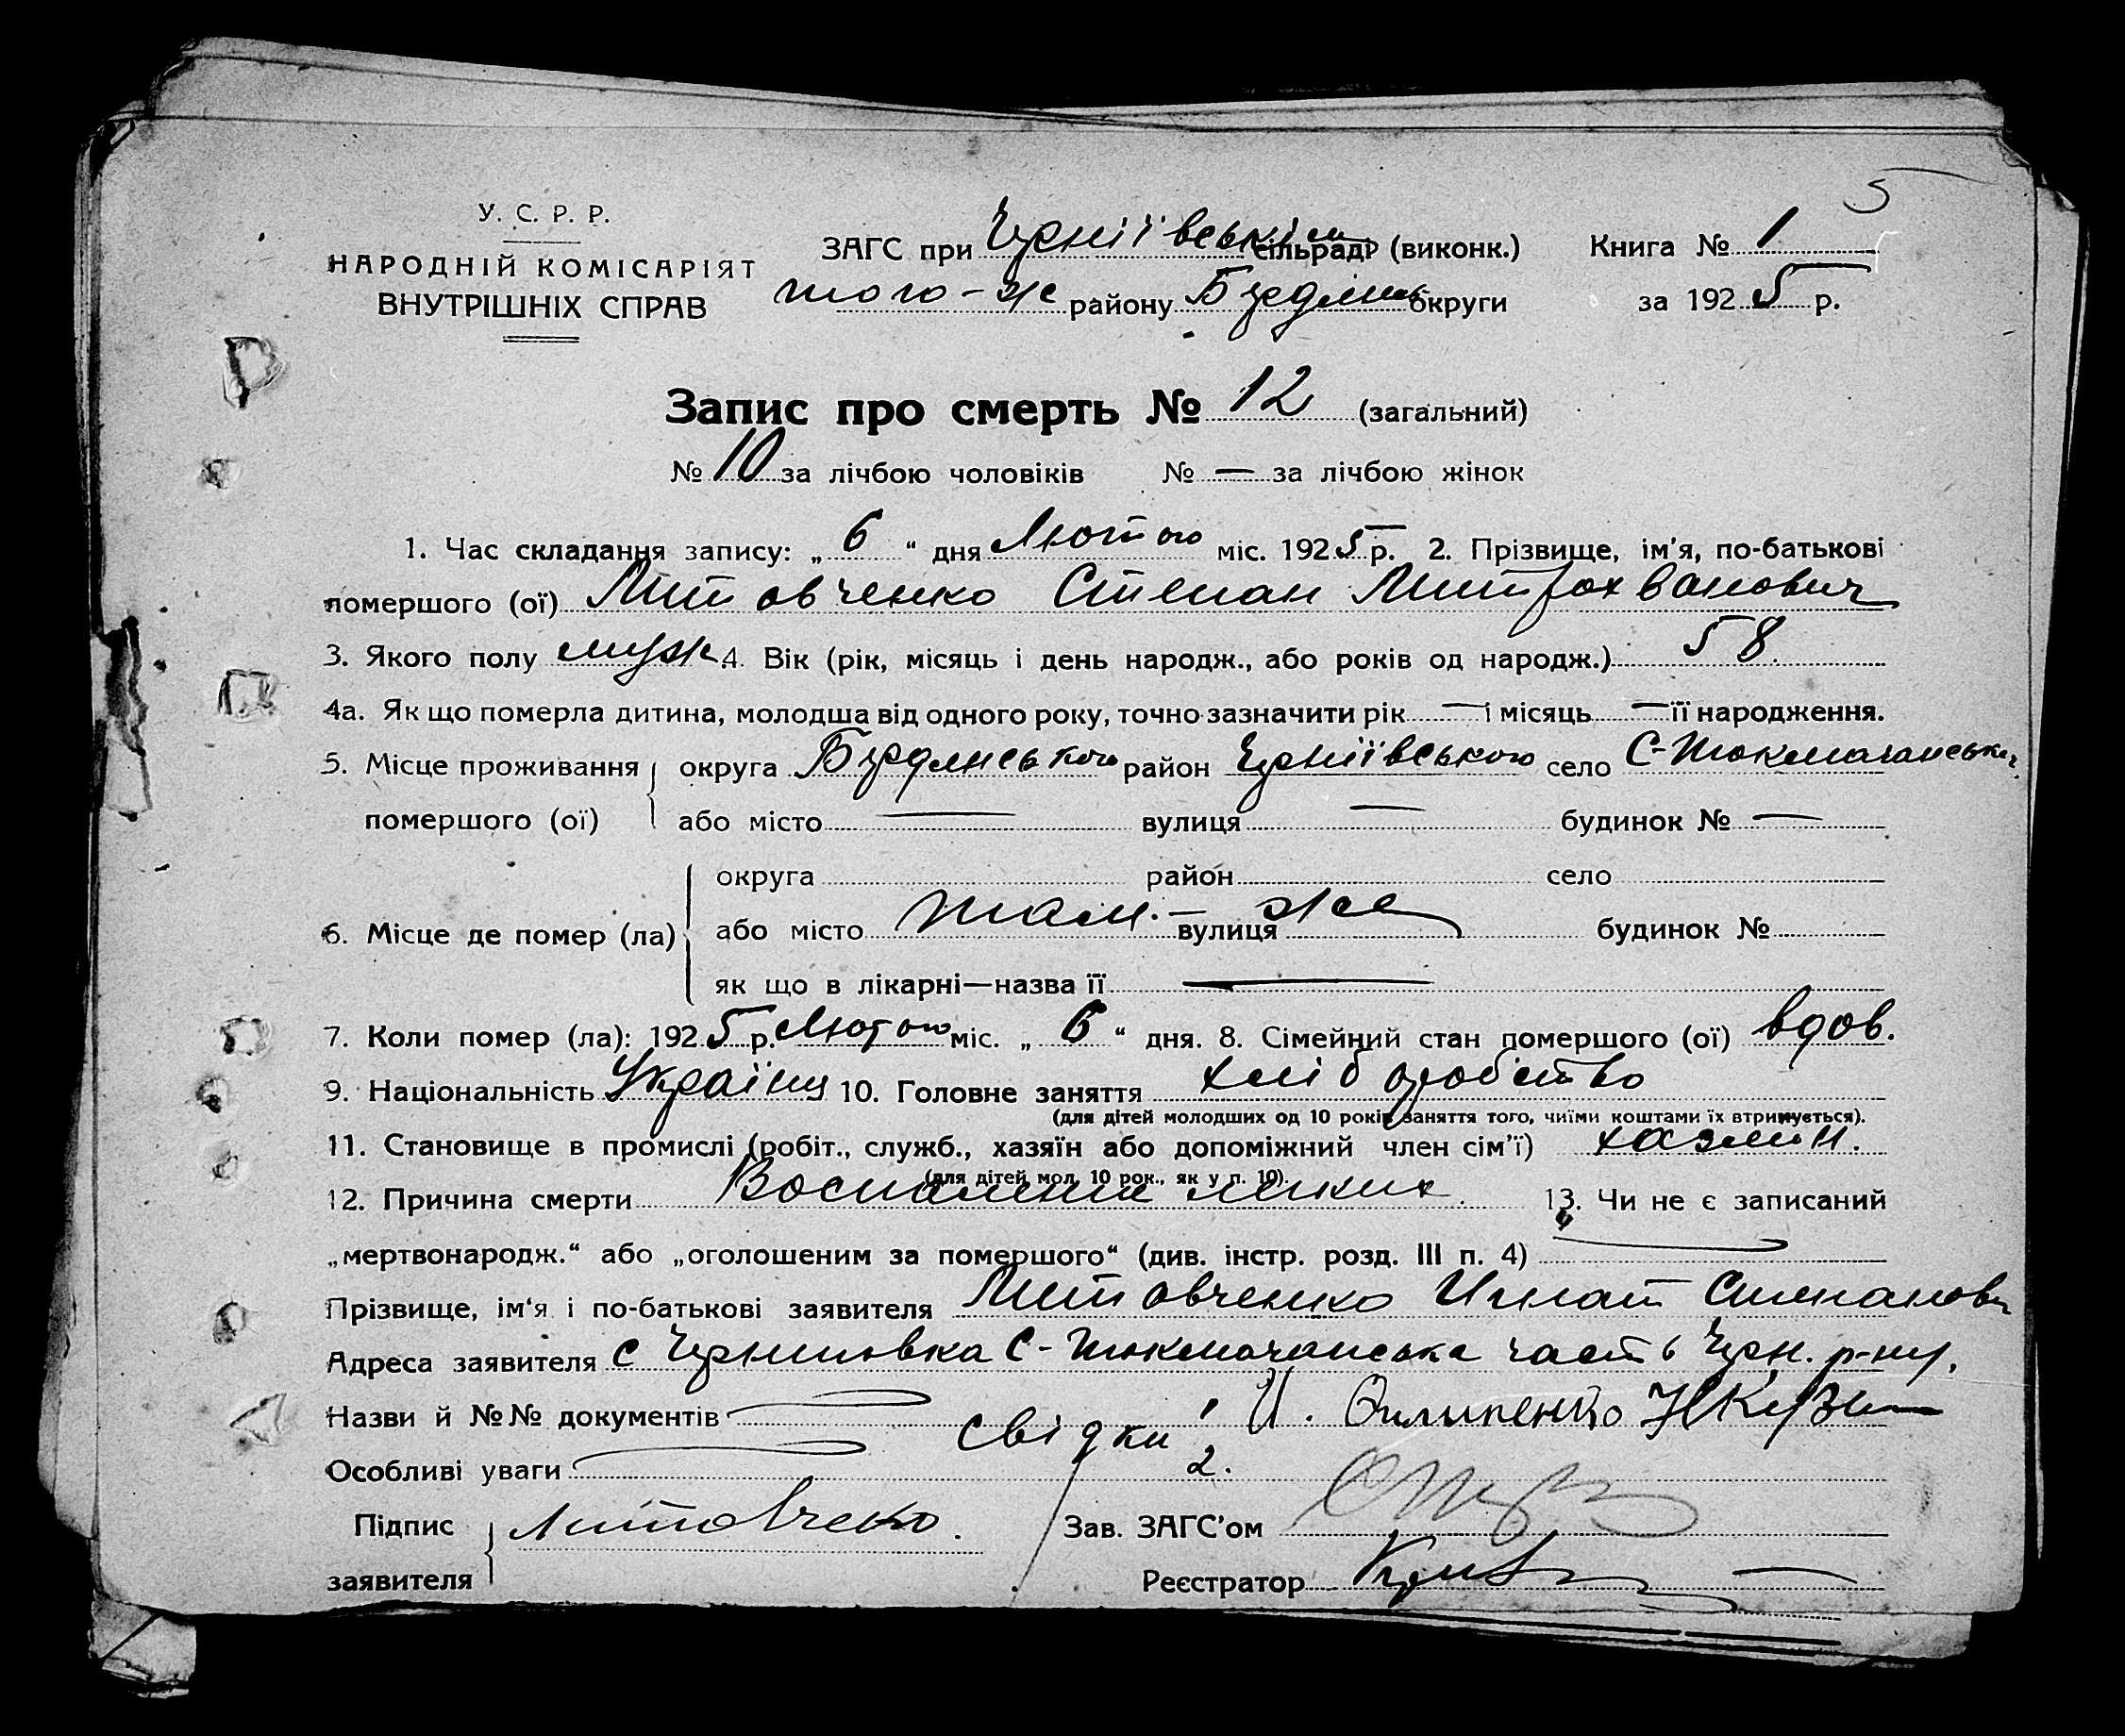 5
У. С. Р. Р.
НАРОДНІЙ КОМІСАРІЯТ
ВНУТРІШНІХ СПРАВ
ЗАГС при Черніївськім сільраді (виконк.)
того-же району Бердянс округи
Книга № 1
за 1925 р.
Запис про смерть № 12 (загальний)
№ 10 за лічбою чоловіків № — за лічбою жінок
1. Час складання запису: „ 6 “ дня Лютого міс. 1925 р. 2. Прізвище, ім'я, по-батькові
помершого (ої) Литовченко Степан Митрохванович
3. Якого полу муж. 4. Вік (рік, місяць і день народж., або років од народж.) 58
4а. Як що померла дитина, молодша від одного року, точно зазначити рік — і місяць — її народження.
5. Місце проживання округа Бердянського район Черніївського село С-Токмачанська
помершого (ої) або місто — вулиця — будинок № —
округа район село
6. Місце де помер (ла) або місто там-же вулиця будинок №
як що в лікарні—назва її —
7. Коли помер (ла): 1925 р. Лютого міс. „ 6 “ дня. 8. Сімейний стан помершого (ої) вдов.
9. Національність Українц 10. Головне заняття хліборобство
(для дітей молодших од 10 років заняття того, чиїми коштами їх втримується).
11. Становище в промислі (робіт., служб., хазяїн або допоміжний член сім'ї) хазяин.
(для дітей мол. 10 рок., як у п. 10).
12. Причина смерти Воспаления легких. 13. Чи не є записаний
„мертвонародж.“ або „оголошеним за помершого“ (див. інстр. розд. III п. 4) —
Прізвище, ім'я і по-батькові заявителя Литовченко Игнат Степанович
Адреса заявителя с Черниговка С-Токмачанська часть Черн. р-ну.
Назви й №№ документів
Свідки 1 И.
Особливі уваги 2.
Підпис
заявителя Литовченко.
Зав. ЗАГС'ом
Реєстратор